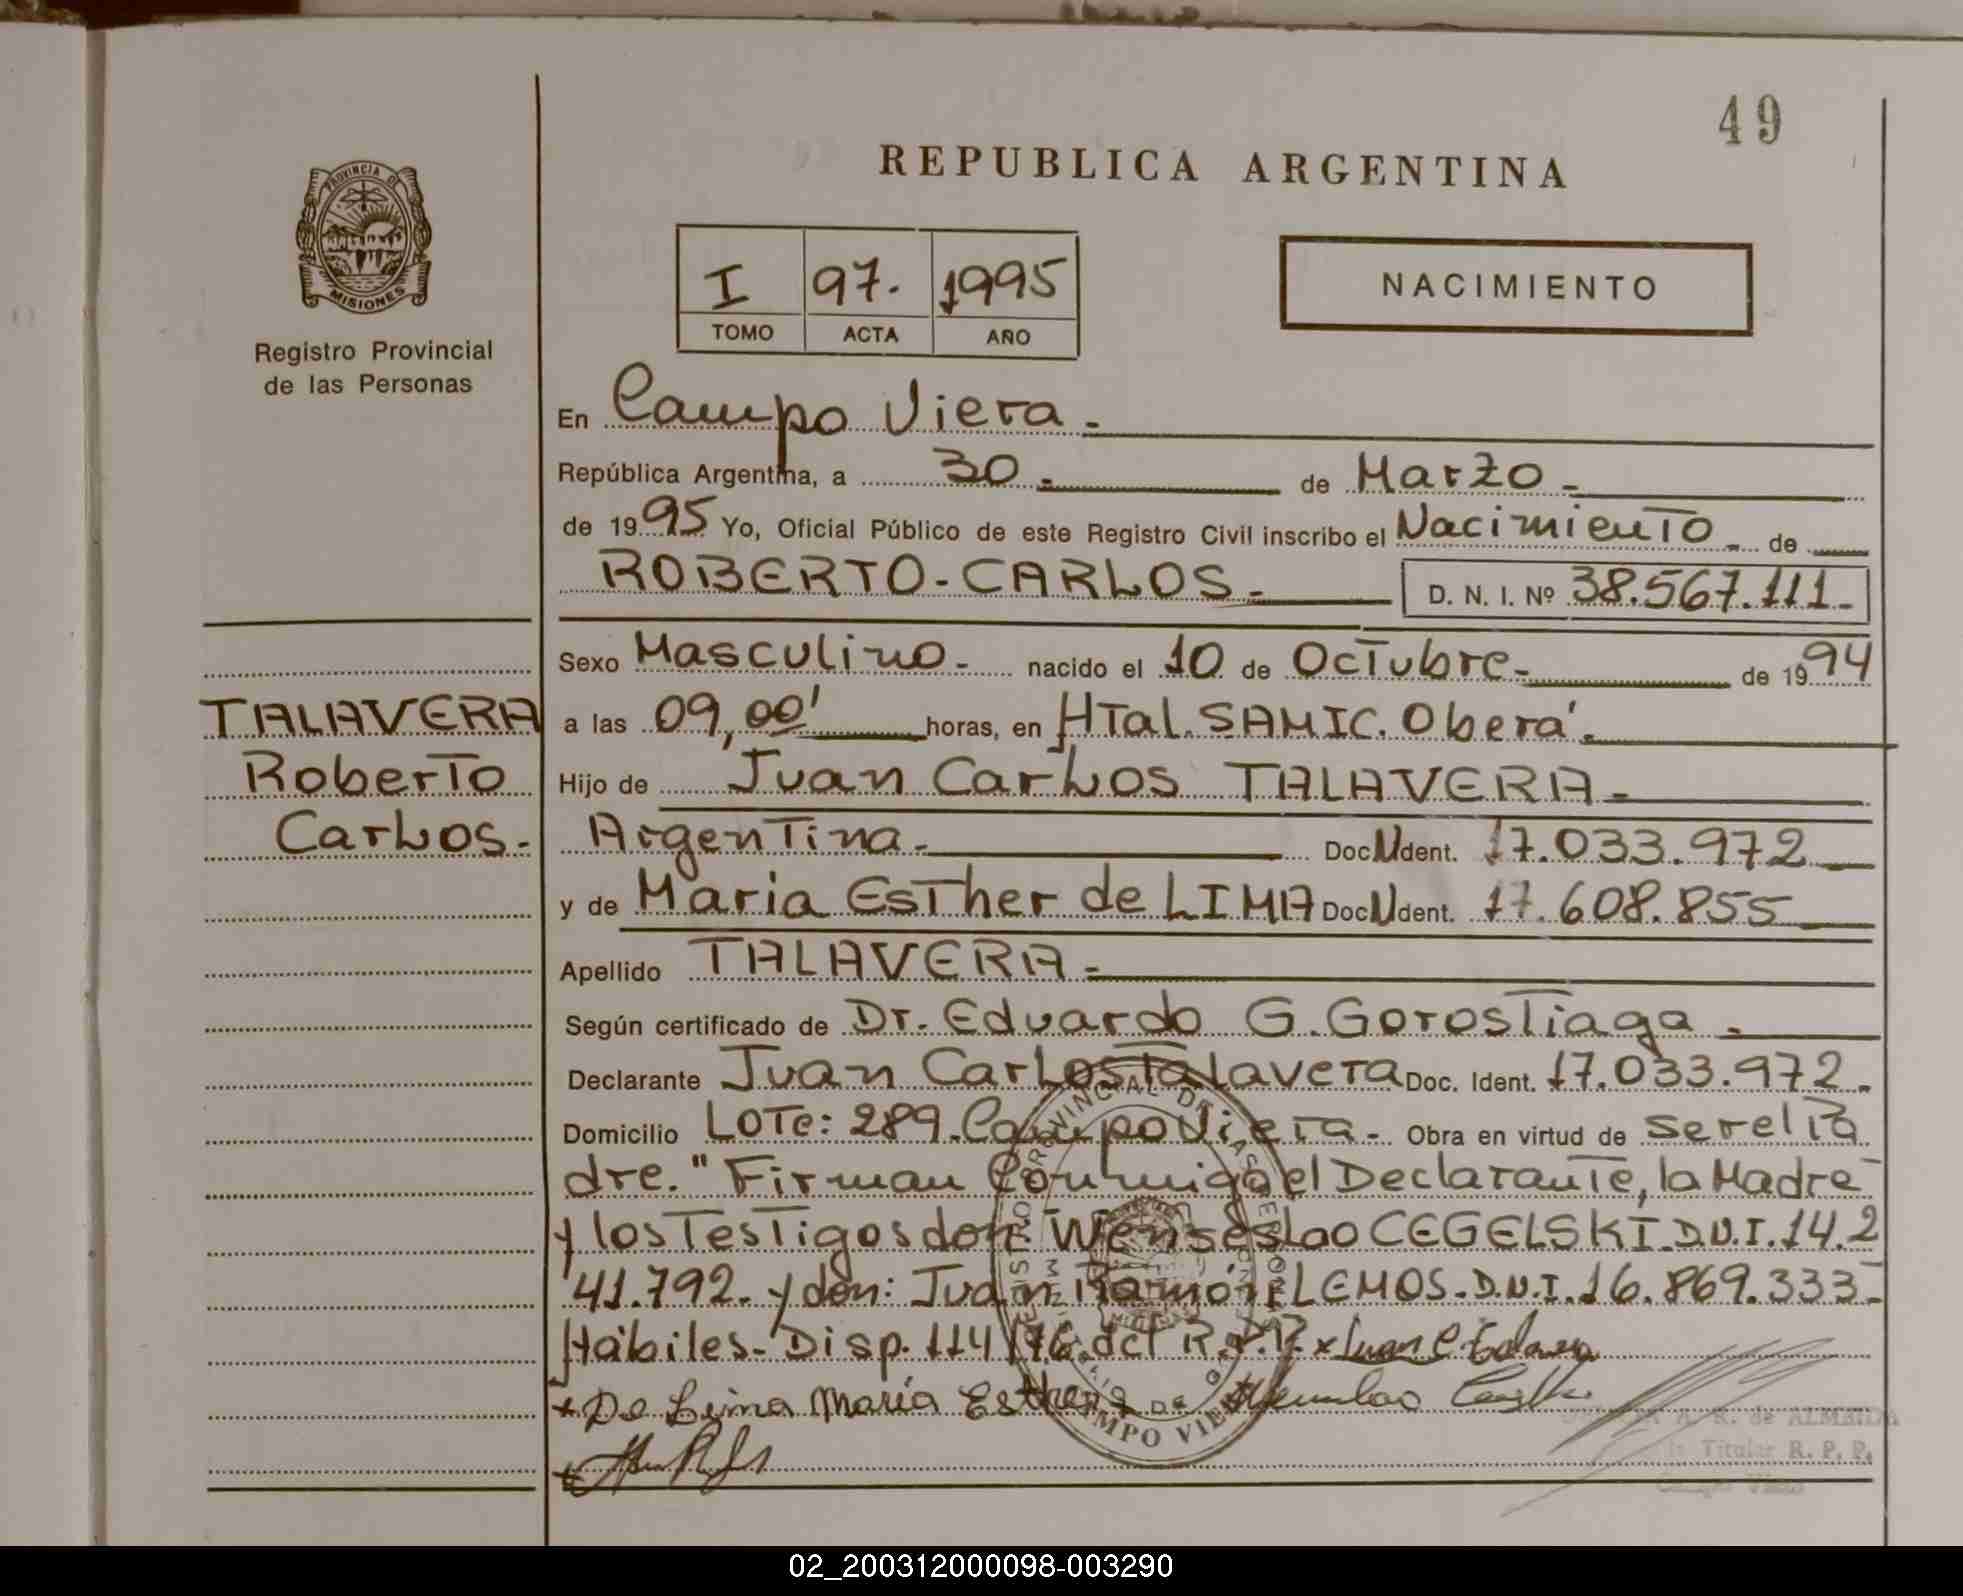 49
REPUBLICA ARGENTINA
PROVINCIA DE
MISIONES
Registro Provincial
de las Personas
I 97. 1995
TOMO ACTA AÑO
NACIMIENTO
En Campo Viera.
República Argentina, a 30. de Marzo.
de 1995 Yo, Oficial Público de este Registro Civil inscribo el Nacimiento de
ROBERTO-CARLOS. D. N. I. Nº 38.567.111.
Sexo Masculino. nacido el 10 de Octubre. de 1994
a las 09,00' horas, en HTal. SAMIC. Oberá.
Hijo de Juan Carlos TALAVERA.
Argentina. Doc Ident. 17.033.972
y de Maria Esther de LIMA Doc Ident. 17.608.855
Apellido TALAVERA.
Según certificado de Dr. Eduardo G. Gorostiaga.
Declarante Juan Carlos Talavera Doc. Ident. 17.033.972.
Domicilio LOTe: 289. Campo Viera. Obra en virtud de ser el Pa
dre." Firman Conmigo el Declarante, la Madre
y los Testigos don Wenseslao CEGELSKI. D.N.I. 14.2
41.792. y don: Juan Ramón LEMOS. D.N.I. 16.869.333
Hábiles. Disp. 114/76. del R.P.P.
De Lima María Esther
TALAVERA
Roberto
Carlos.
CAMPO VIERA
A. R. de ALMEIDA
Titular R. P. P.
Campo Viera
02_200312000098-003290